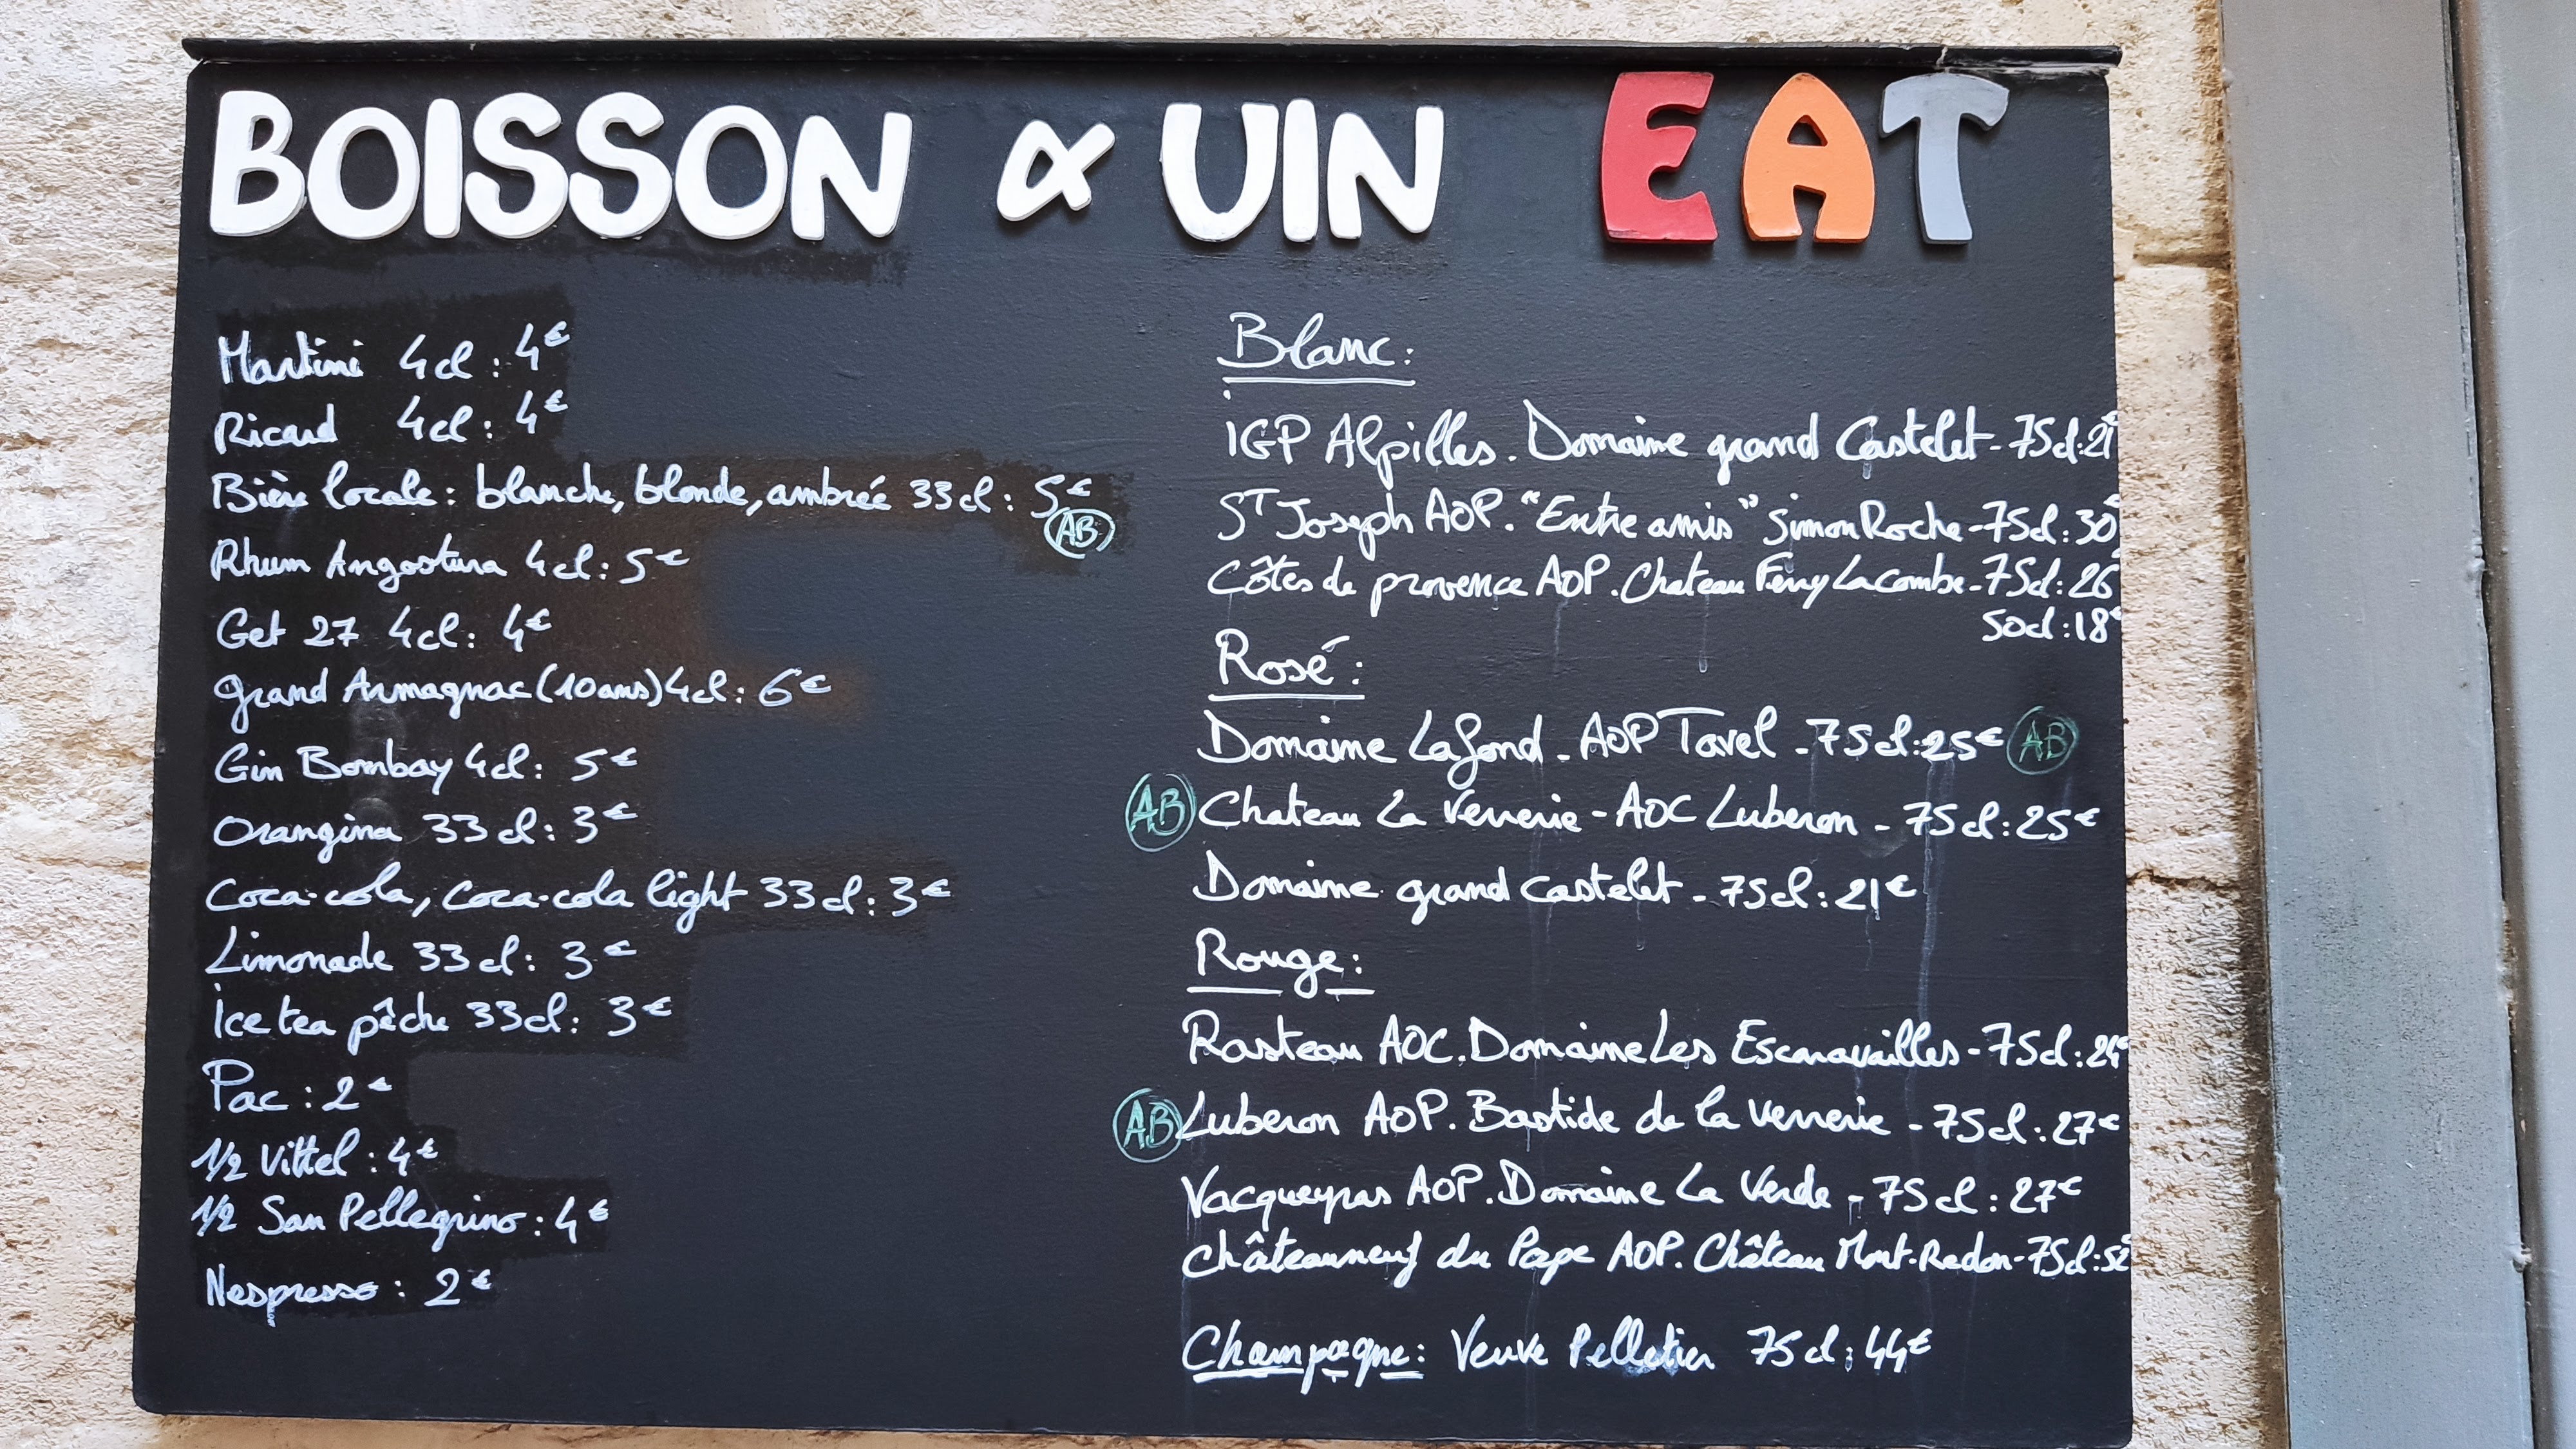 BOISSON & VIN EAT
Martini 4cl : 4€
Ricard 4cl : 4€
Bière locale : blanche, blonde, ambrée 33cl : 5€
AB
Rhum Angostura 4cl : 5€
Get 27 4cl : 4€
grand Armagnac (10 ans) 4cl : 6€
Gin Bombay 4cl : 5€
Orangina 33cl : 3€
Coca-cola, Coca-cola light 33cl : 3€
Limonade 33cl : 3€
Ice tea pêche 33cl : 3€
Pac : 2€
1/2 Vittel : 4€
1/2 San Pellegrino : 4€
Nespresso : 2€
Blanc :
IGP Alpilles. Domaine grand Castelet - 75cl : 21€
ST Joseph AOP. "Entre amis" Simon Roche - 75cl : 30€
Côtes de provence AOP. Chateau Ferry Lacombe - 75cl : 26€
50cl : 18€
Rosé :
Domaine Lafond - AOP Tavel - 75cl : 25€ AB
AB Chateau La Verrerie - AOC Luberon - 75cl : 25€
Domaine grand Castelet - 75cl : 21€
Rouge :
Rasteau AOC. Domaine Les Escaravailles - 75cl :
AB Luberon AOP. Bastide de la Verrerie - 75cl : 27€
Vacqueyras AOP. Domaine La Verde - 75cl : 27€
Châteauneuf du Pape AOP. Château Mont-Redon - 75cl :
Champagne : Veuve Pelletier 75cl : 44€